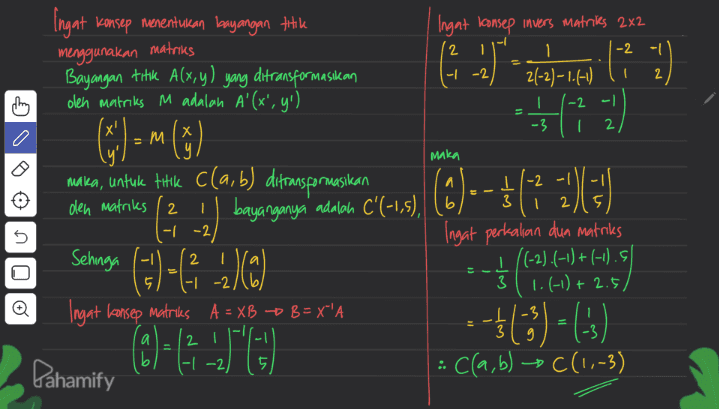 Ingat konsep menentukan bayangan titik
menggunakan matriks
Bayangan titik A(x,y) yang ditransformasikan
oleh matriks M adalah A'(x',y')
(x' y') = M (x y)
maka, untuk titik C(a,b) ditransformasikan
oleh matriks (2 1 -1 -2) bayanganya adalah C'(-1,5),
Sehinga (-1 5) = (2 1 -1 -2)(a b)
Ingat konsep Matriks A = XB → B = X⁻¹A
(a b) = (2 1 -1 -2)⁻¹ (-1 5)
Pahamify
Ingat konsep invers matriks 2x2
(2 1 -1 -2)⁻¹ = 1/2(-2)-1.(-1) . (-2 -1 1 2)
= 1/-3 (-2 -1 1 2)
maka
(a b) = - 1/3 (-2 -1 1 2)(-1 5)
Ingat perkalian dua matriks
= - 1/3 ((-2).(-1) + (-1).5 1.(-1) + 2.5)
= - 1/3 (-3 9) = (1 -3)
∴ C(a,b) → C(1,-3)